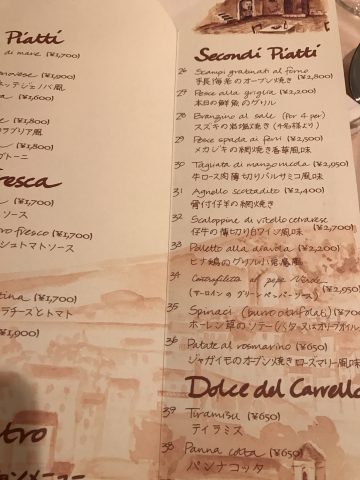 Piatti
di mare (¥1,700)
(¥1,800)
(¥1,600)
カラブリア風
(¥1,800)
fresca
ソース
fresco (¥1,700)
シュトマトソース
(¥1,700)
ラチーズとトマト
(¥1,900)
Secondi Piatti
26 Scampi gratinati al forno (¥2,800)
手長海老のオーブン焼き
27 Pesce alla griglia (¥2,200)
本日の鮮魚のグリル
28 Branzino al sale (Per 4 per)
スズキの岩塩焼き (4名様より)
29 Pesce spada ai ferri (¥2,500)
メカジキの網焼き香草風味
30 Tagliata di manzo (¥2,950)
牛ロース肉薄切りバルサミコ風味
31 Agnello scottadito (¥2,400)
骨付仔羊の網焼き
32 Scaloppine di vitello (¥2,700)
仔牛の薄切り白ワイン風味
33 Polletto alla diavola (¥2,200)
ヒナ鶏のグリル小悪魔風
34 Controfiletto al pepe verde (¥2,950)
(サーロインのグリーンペッパーソース)
35 Spinaci (burro (¥650)
ホーレン草のソテー (バター又はオリーブオイル
36 Patate al rosmarino (¥650)
ジャガイモのオーブン焼きローズマリー風味
Dolce del Carrello
37 Tiramisu (¥650)
ティラミス
38 Panna cotta (¥650)
パンナコッタ